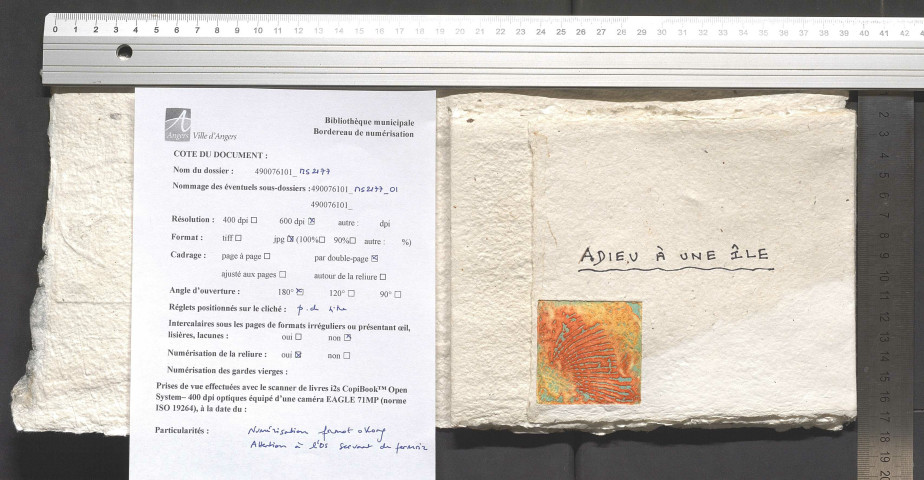 0 1 2 3 4 5 6 7 8 9 10 11 12 13 14 15 16 17 18 19 20 21 22 23 24 25 26 27 28 29 30 31 32 33 34 35 36 37 38 39 40 41 42 43 4
A
Angers Ville d'Angers
Bibliothèque municipale
Bordereau de numérisation
COTE DU DOCUMENT :
Nom du dossier : 490076101_ MS2177
Nommage des éventuels sous-dossiers : 490076101_ MS2177_01
490076101_
Résolution : 400 dpi 600 dpi autre : dpi
Format : tiff jpg (100% 90% autre : %)
Cadrage : page à page par double-page
ajusté aux pages autour de la reliure
Angle d'ouverture : 180° 120° 90°
Réglets positionnés sur le cliché : p. de titre
Intercalaires sous les pages de formats irréguliers ou présentant œil,
lisières, lacunes : oui non
Numérisation de la reliure : oui non
Numérisation des gardes vierges :
Prises de vue effectuées avec le scanner de livres i2s CopiBook™ Open
System– 400 dpi optiques équipé d'une caméra EAGLE 71MP (norme
ISO 19264), à la date du :
Particularités : Numérisation format oblong
Attention à l'os servant de fermoir
ADIEU À UNE ÎLE
2 3 4 5 6 7 8 9 10 11 12 13 14 15 16 17 18 19 20